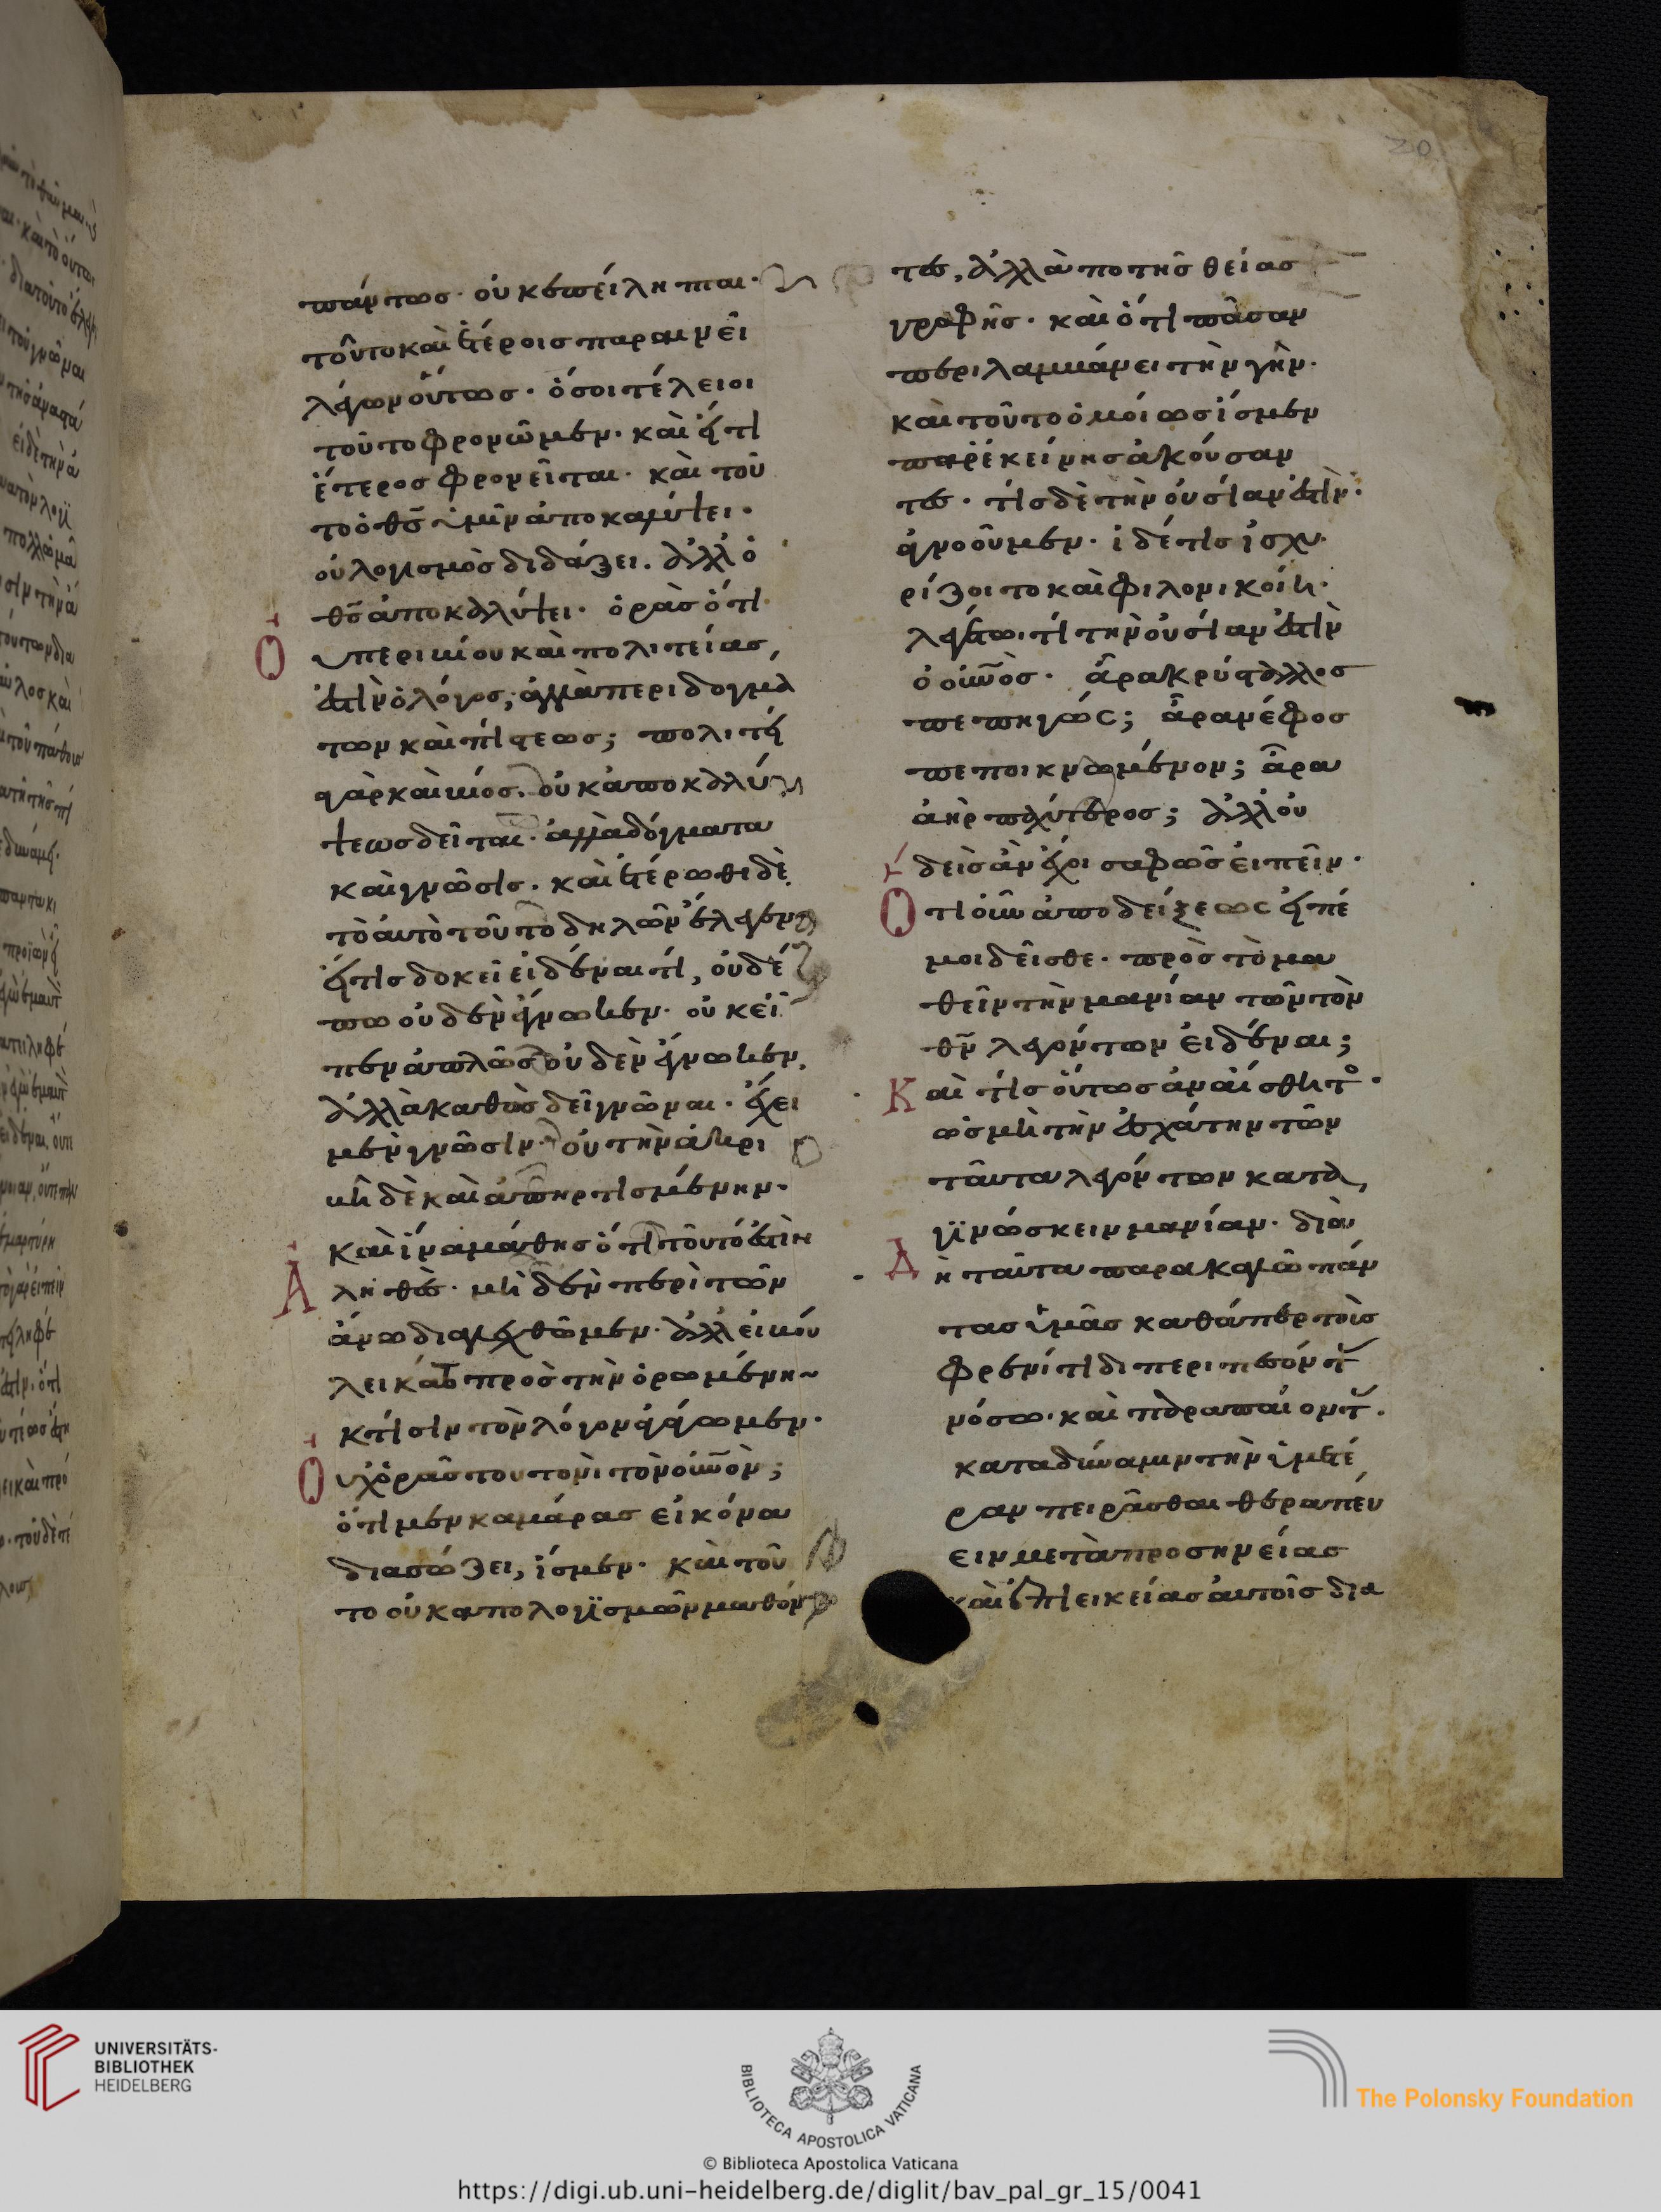 πάντως· οὐκ ἐπείληπται·
τοῦτο καὶ ἑτέροις παραινεῖ
λέγων οὕτως· ὅσοι τέλειοι
τοῦτο φρονῶμεν· καὶ εἴ τι
ἑτέρος φρονεῖται· καὶ τοῦ
το ὁ θς ὑμῖν ἀποκαλύψει·
οὐ λογισμὸς διδάξει. ἀλλ' ὁ
θς ἀποκαλύψει· ὁρᾶς ὅτι
Οὐ περι βίου καὶ πολιτείας,
ἐστὶν ὁ λόγος, ἀλλὰ περι δογμά
των καὶ πίστεως; πολιτεί
α γὰρ καὶ βίος. οὐκ ἀποκαλύ
ψεως δεῖται· ἀλλὰ δόγματα
καὶ γνῶσις· καὶ ἑτέρωθι δὲ
τὸ αὐτὸ τοῦτο δηλῶν ἔλεγεν·
εἴ τις δοκεῖ εἰδέναι τί, οὐδέ
πω οὐδὲν ἔγνωκεν· οὐκ εἶ
πεν ἁπλῶς οὐδὲν ἔγνωκεν.
ἀλλὰ καθὼς δεῖ γνῶναι· ἔχει
μὲν γνῶσιν· οὐ τὴν ἀκρι
βῆ δὲ καὶ ἀπηρτισμένην·
Καὶ ἵνα μάθης ὅτι τοῦτό ἐστιν
Ἀληθὲς· μηδὲν περὶ τῶν
ἄνω διαλεχθῶμεν· ἀλλ' εἰ βού
λει κάτω πρὸς τὴν ὁρωμένην
κτίσιν τὸν λόγον ἀγάγωμεν·
Οὐχ ὁρᾶς τουτονὶ τὸν οὐνὸν;
ὅτι μὲν καμάρας εἰκόνα
διασώζει, ἴσμεν· καὶ τοῦ
το οὐκ απο λογϊσμῶν μαθόν
τες, ἀλλ' ἀπο τῆς θείας
γραφῆς· καὶ ὅτι πᾶσαν
περιλαμβάνει τὴν γῆν·
καὶ τοῦτο ὁμοίως ἴσμεν
παρ' ἐκείνης ἀκούσαν
τες· τίς δὲ τὴν οὐσίαν ἐστὶν·
ἀγνοοῦμεν· ἰ δέ τις ἰσχυ
ρίζοιτο καὶ φιλονικοίη·
λεγέτω· τί τὴν οὐσίαν ἐστὶν
ὁ οὐνὸς· ἆρα κρύσταλλος
πεπηγώς; ἆρα νέφος
πεποικνωμένον; ἆρα
ἀὴρ παχύτερος; ἀλλ' οὐ
δεὶς ἂν ἔχοι σαφῶς εἰπεῖν·
Ἔτι οὖν ἀποδείξεως εἰπέ
μοι δεῖσθε· πρὸς τὸ μα
θεῖν τὴν μανίαν τῶν τὸν
θν λεγόντων εἰδέναι;
Καὶ τίς οὕτως ἀναίσθητος·
ὡς μὴ τὴν ἐσχάτην τῶν
ταῦτα λεγόντων κατα
γϊνώσκειν μανίαν· διὰ
Δὴ ταῦτα παρακαλῶ πάν
τας ὑμᾶς καθάπερ τοῖς
φρενίτιδι περιπεσόντας
νόσω· καὶ παραπαίοντας·
κατα δύναμιν τὴν ὑμετέ
ραν πειρᾶσθαι θεραπεύ
ειν μετὰ προσηνείας
καὶ ἐπιεικείας αὐτοῖς δια
UNIVERSITÄTS-
BIBLIOTHEK
HEIDELBERG
BIBLIOTECA APOSTOLICA VATICANA
The Polonsky Foundation
© Biblioteca Apostolica Vaticana
https://digi.ub.uni-heidelberg.de/diglit/bav_pal_gr_15/0041